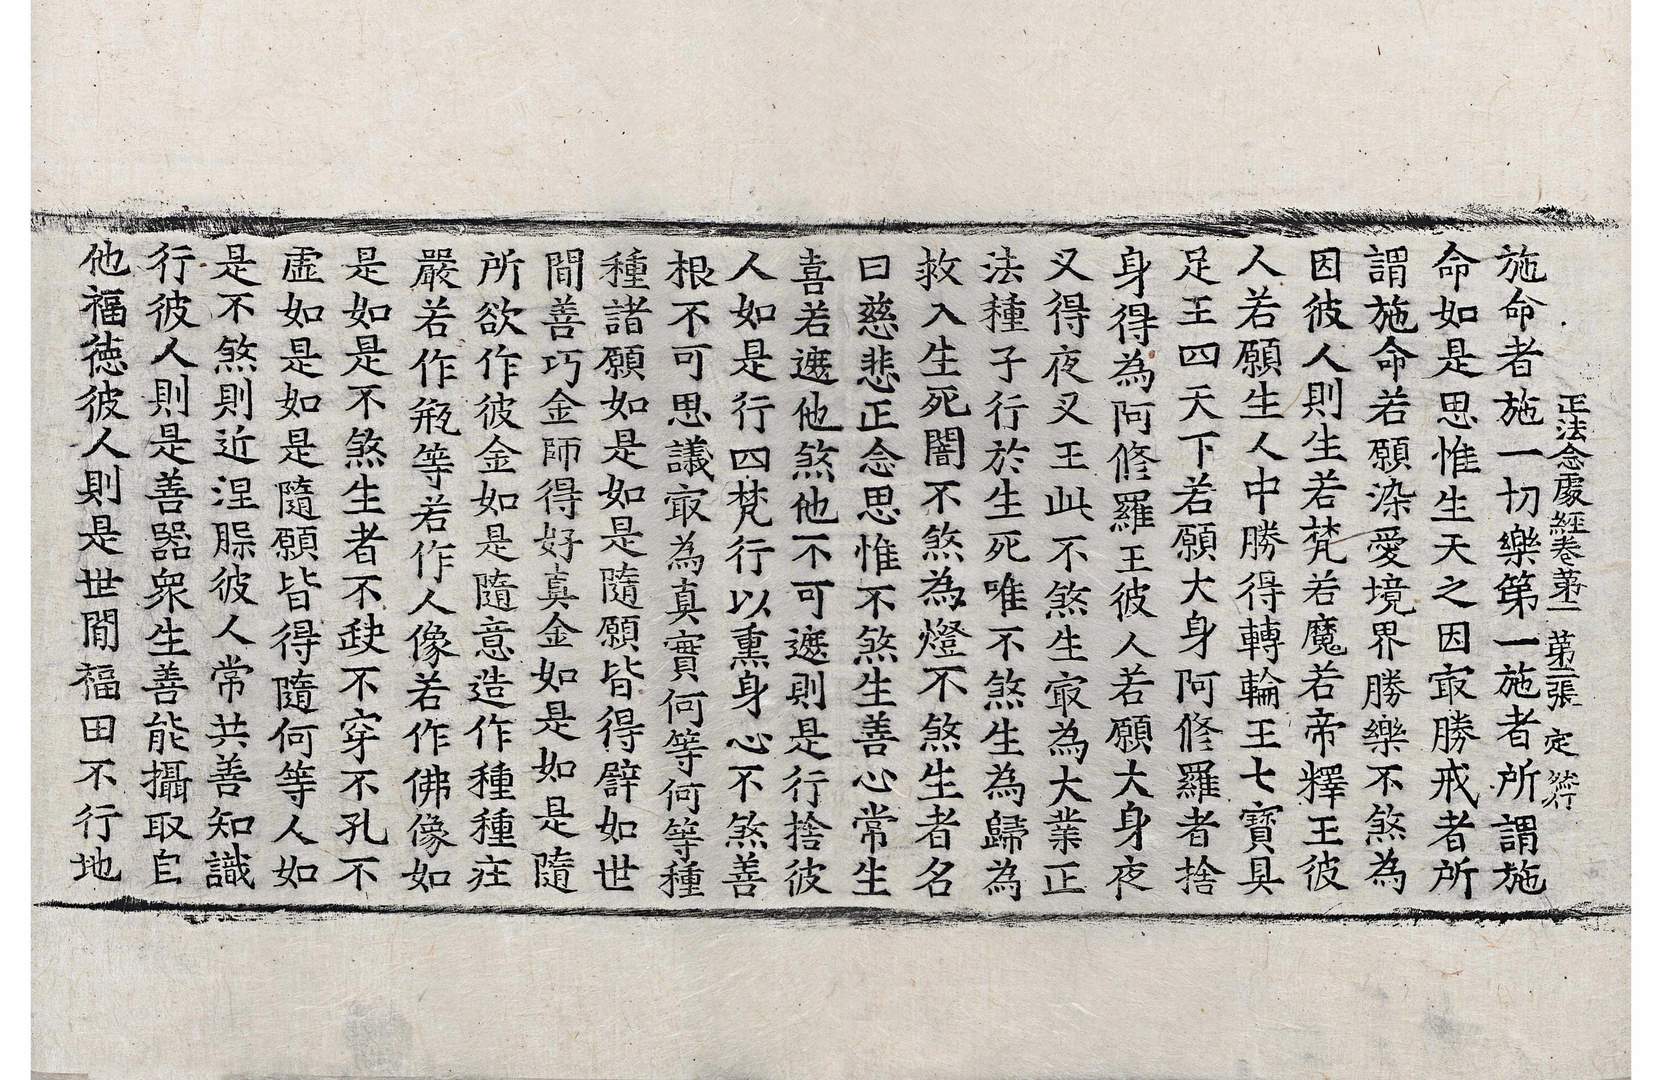 正法念處經卷第二 第三張 定
施命者施一切樂第一施者所謂施
命如是思惟生天之因㝡勝戒者所
謂施命若願染愛境界勝樂不煞為
因彼人則生若梵若魔若帝釋王彼
人若願生人中勝得轉輪王七寶具
足王四天下若願大身阿脩羅者捨
身得為阿脩羅王彼人若願大身夜
叉得夜叉王此不煞生㝡為大業正
法種子行於生死唯不煞生為歸為
救入生死闇不煞為燈不煞生者名
曰慈悲正念思惟不煞生善心常生
喜若遮他煞他不可遮則是行捨彼
人如是行四梵行以熏身心不煞善
根不可思議㝡為真實何等何等種
種諸願如是如是隨願皆得譬如世
間善巧金師得好真金如是如是隨
所欲作彼金如是隨意造作種種莊
嚴若作瓶等若作人像若作佛像如
是如是不煞生者不缺不穿不孔不
虛如是如是隨願皆得隨何等人如
是不煞則近涅槃彼人常共善知識
行彼人則是善器衆生善能攝取自
他福徳彼人則是世間福田不行地